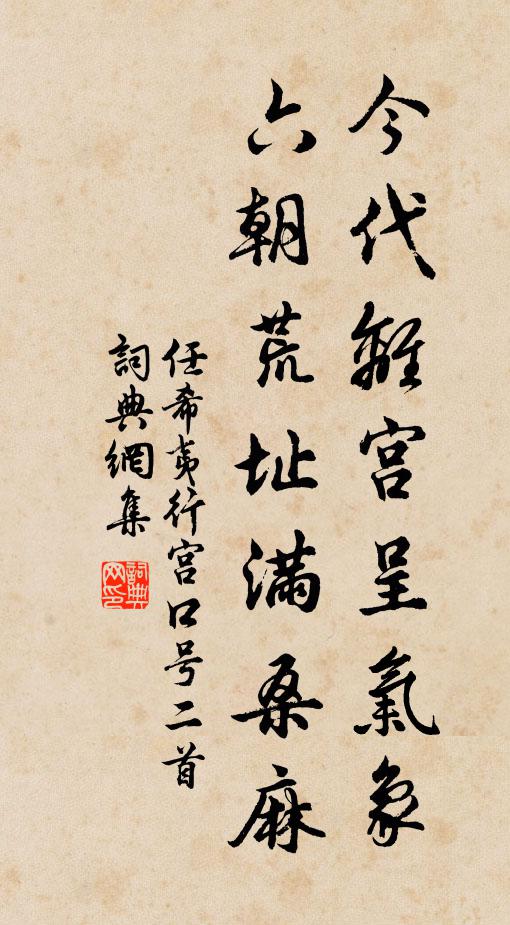 今代離宫呈氣象
六朝荒址滿桑麻
任希夷行宫口号二首
詞典網集
詞典
网印